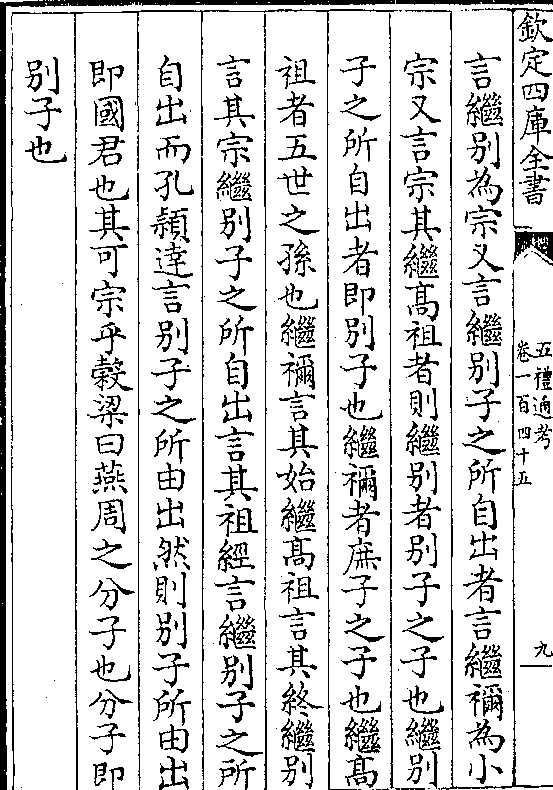 欽定四庫全書
五禮通考
卷一百四十五
九
言繼别為宗又言繼别子之所自出者言繼禰為小
宗又言宗其繼髙祖者則繼别者别子之子也繼别
子之所自出者即别子也繼禰者庶子之子也繼髙
祖者五世之孫也繼禰言其始繼髙祖言其終繼别
言其宗繼别子之所自出言其祖經言繼别子之所
自出而孔頴逹言别子之所由出然則别子所由出
即國君也其可宗乎榖梁曰燕周之分子也分子即
别子也